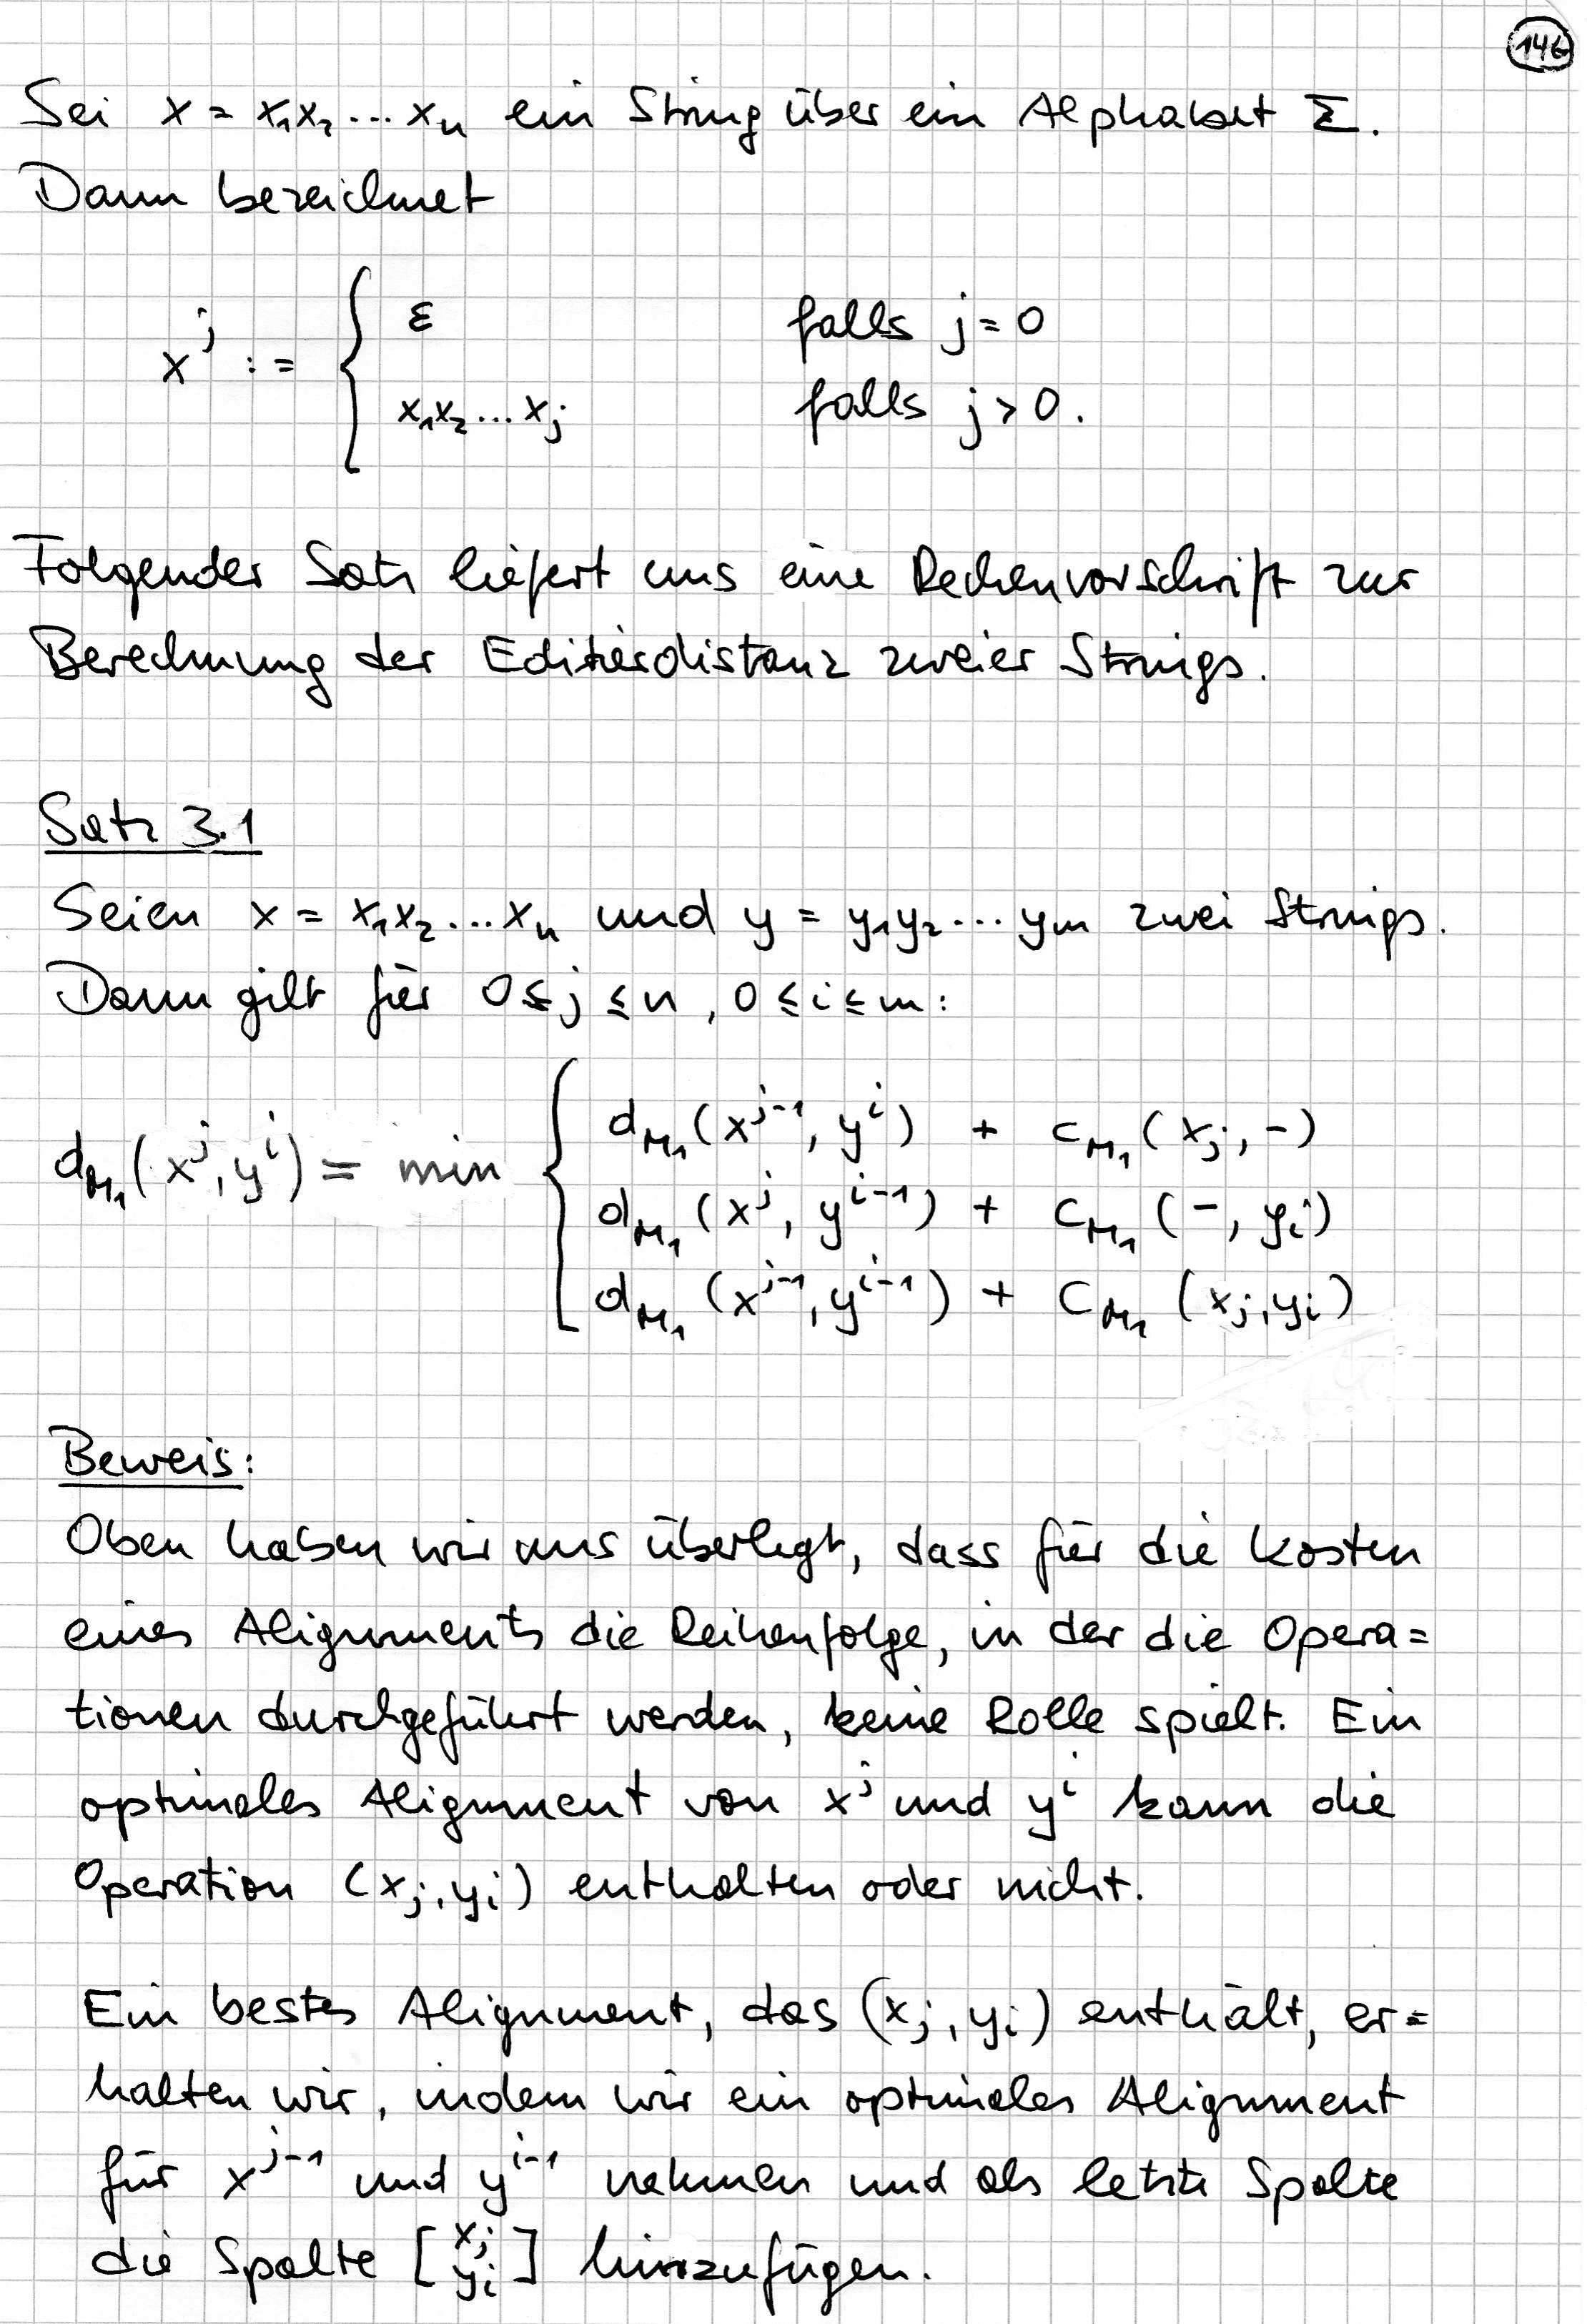 146
Sei x = x₁x₂...xₙ ein String über ein Alphabet Σ.
Dann bezeichnet
xʲ := { ε falls j = 0
x₁x₂...xⱼ falls j > 0.
Folgender Satz liefert uns eine Rechenvorschrift zur
Berechnung der Editierdistanz zweier Strings.
Satz 3.1
Seien x = x₁x₂...xₙ und y = y₁y₂...yₘ zwei Strings.
Dann gilt für 0 ≤ j ≤ n, 0 ≤ i ≤ m:
d_{M₁}(x^{j-1}, y^i) + c_{M₁}(x_j, -)
d_{M₁}(x^j, y^i) = min { d_{M₁}(x^j, y^{i-1}) + c_{M₁}(-, y_i)
d_{M₁}(x^{j-1}, y^{i-1}) + c_{M₁}(x_j, y_i)
Beweis:
Oben haben wir uns überlegt, dass für die Kosten
eines Alignments die Reihenfolge, in der die Opera=
tionen durchgeführt werden, keine Rolle spielt. Ein
optimales Alignment von x^j und y^i kann die
Operation (x_j, y_i) enthalten oder nicht.
Ein bestes Alignment, das (x_j, y_i) enthält, er=
halten wir, indem wir ein optimales Alignment
für x^{j-1} und y^{i-1} nehmen und als letzte Spalte
die Spalte [x_j y_i] hinzufügen.